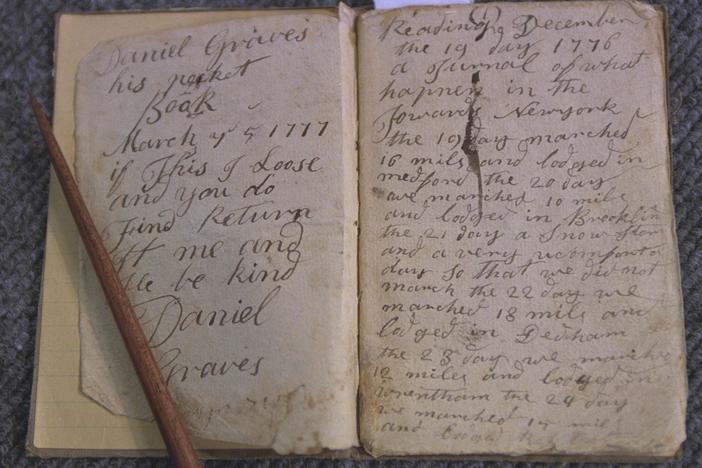 Daniel Graves
his pocket
Book
March ye 5 1777
if This I Loose
and you do
Find Return
it me and
be kind
Daniel
Graves
Reading December
the 19 day 1776
a Jurnal of what
hapnen in the
Toward Newyork
the 19 day marched
16 mils and lodged in
medford the 20 day
we marched 10 mils
and lodged in Brooklin
the 21 day a Snow Storm
and a very uncomforta
day so that we did not
march the 22 day we
marched 18 mils and
lodged in Dedham
the 23 day we marched
12 miles and lodged in
wrentham the 24 day
we marched 15 mils
and lodged